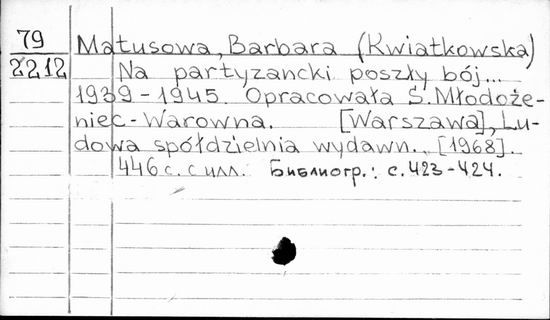 79
2212
Matusowa, Barbara (Kwiatkowska)
Na partyzancki poszły bój...
1939-1945. Opracowała S. Młodoże-
niec-Warowna. [Warszawa], Lu-
dowa spółdzielnia wydawn., [1968].
446 с. с илл. Библиогр.: с. 423-424.